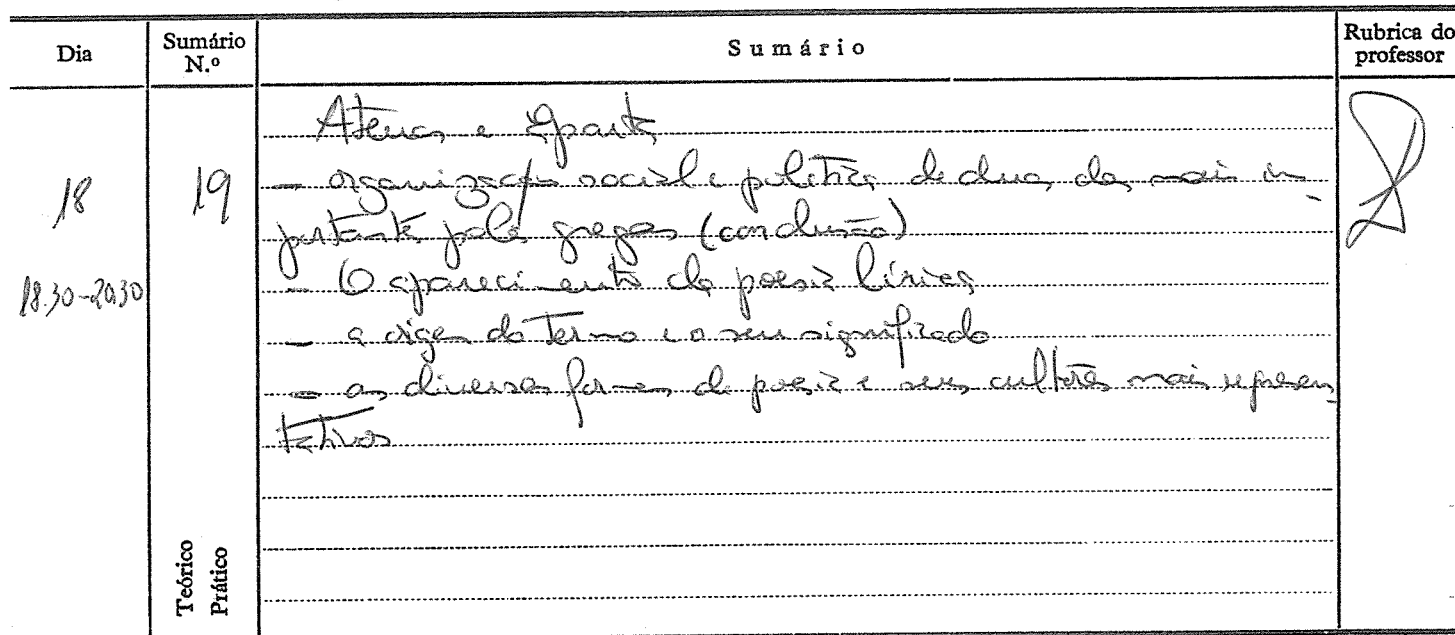 Dia
Sumário N.º
Sumário
Rubrica do professor
18
19
18.30-20.30
Atenas e Esparta
- organização social e política de duas das mais im-
portantes poleis gregas (conclusão)
- O aparecimento da poesia lírica
- a origem do termo e o seu significado
- as diversas formas de poesia e seus cultores mais represen-
tativos
Teórico
Prático